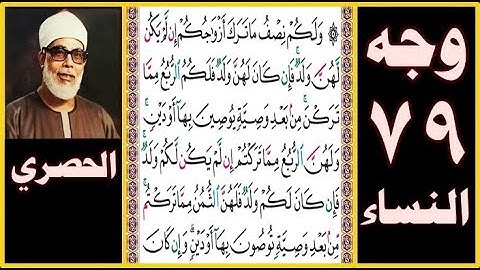 وجه
٧٩
النساء
۞ وَلَكُمْ نِصْفُ مَا تَرَكَ أَزْوَاجُكُمْ إِن لَّمْ يَكُن
لَّهُنَّ وَلَدٌ ۚ فَإِن كَانَ لَهُنَّ وَلَدٌ فَلَكُمُ الرُّبُعُ مِمَّا
تَرَكْنَ ۚ مِن بَعْدِ وَصِيَّةٍ يُوصِينَ بِهَا أَوْ دَيْنٍ ۚ
وَلَهُنَّ الرُّبُعُ مِمَّا تَرَكْتُمْ إِن لَّمْ يَكُن لَّكُمْ وَلَدٌ ۚ
فَإِن كَانَ لَكُمْ وَلَدٌ فَلَهُنَّ الثُّمُنُ مِمَّا تَرَكْتُم ۚ
مِّن بَعْدِ وَصِيَّةٍ تُوصُونَ بِهَا أَوْ دَيْنٍ ۗ وَإِن كَانَ
الحصري